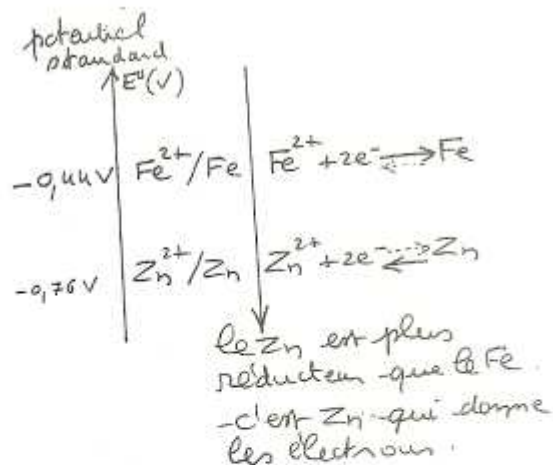 potential
standard
E°(V)
-0,44V Fe²⁺/Fe Fe²⁺+2e⁻ ⇌ Fe
-0,76V Zn²⁺/Zn Zn²⁺+2e⁻ ⇌ Zn
le Zn est plus
réducteur que le Fe.
-c'est Zn qui donne
les électrons.